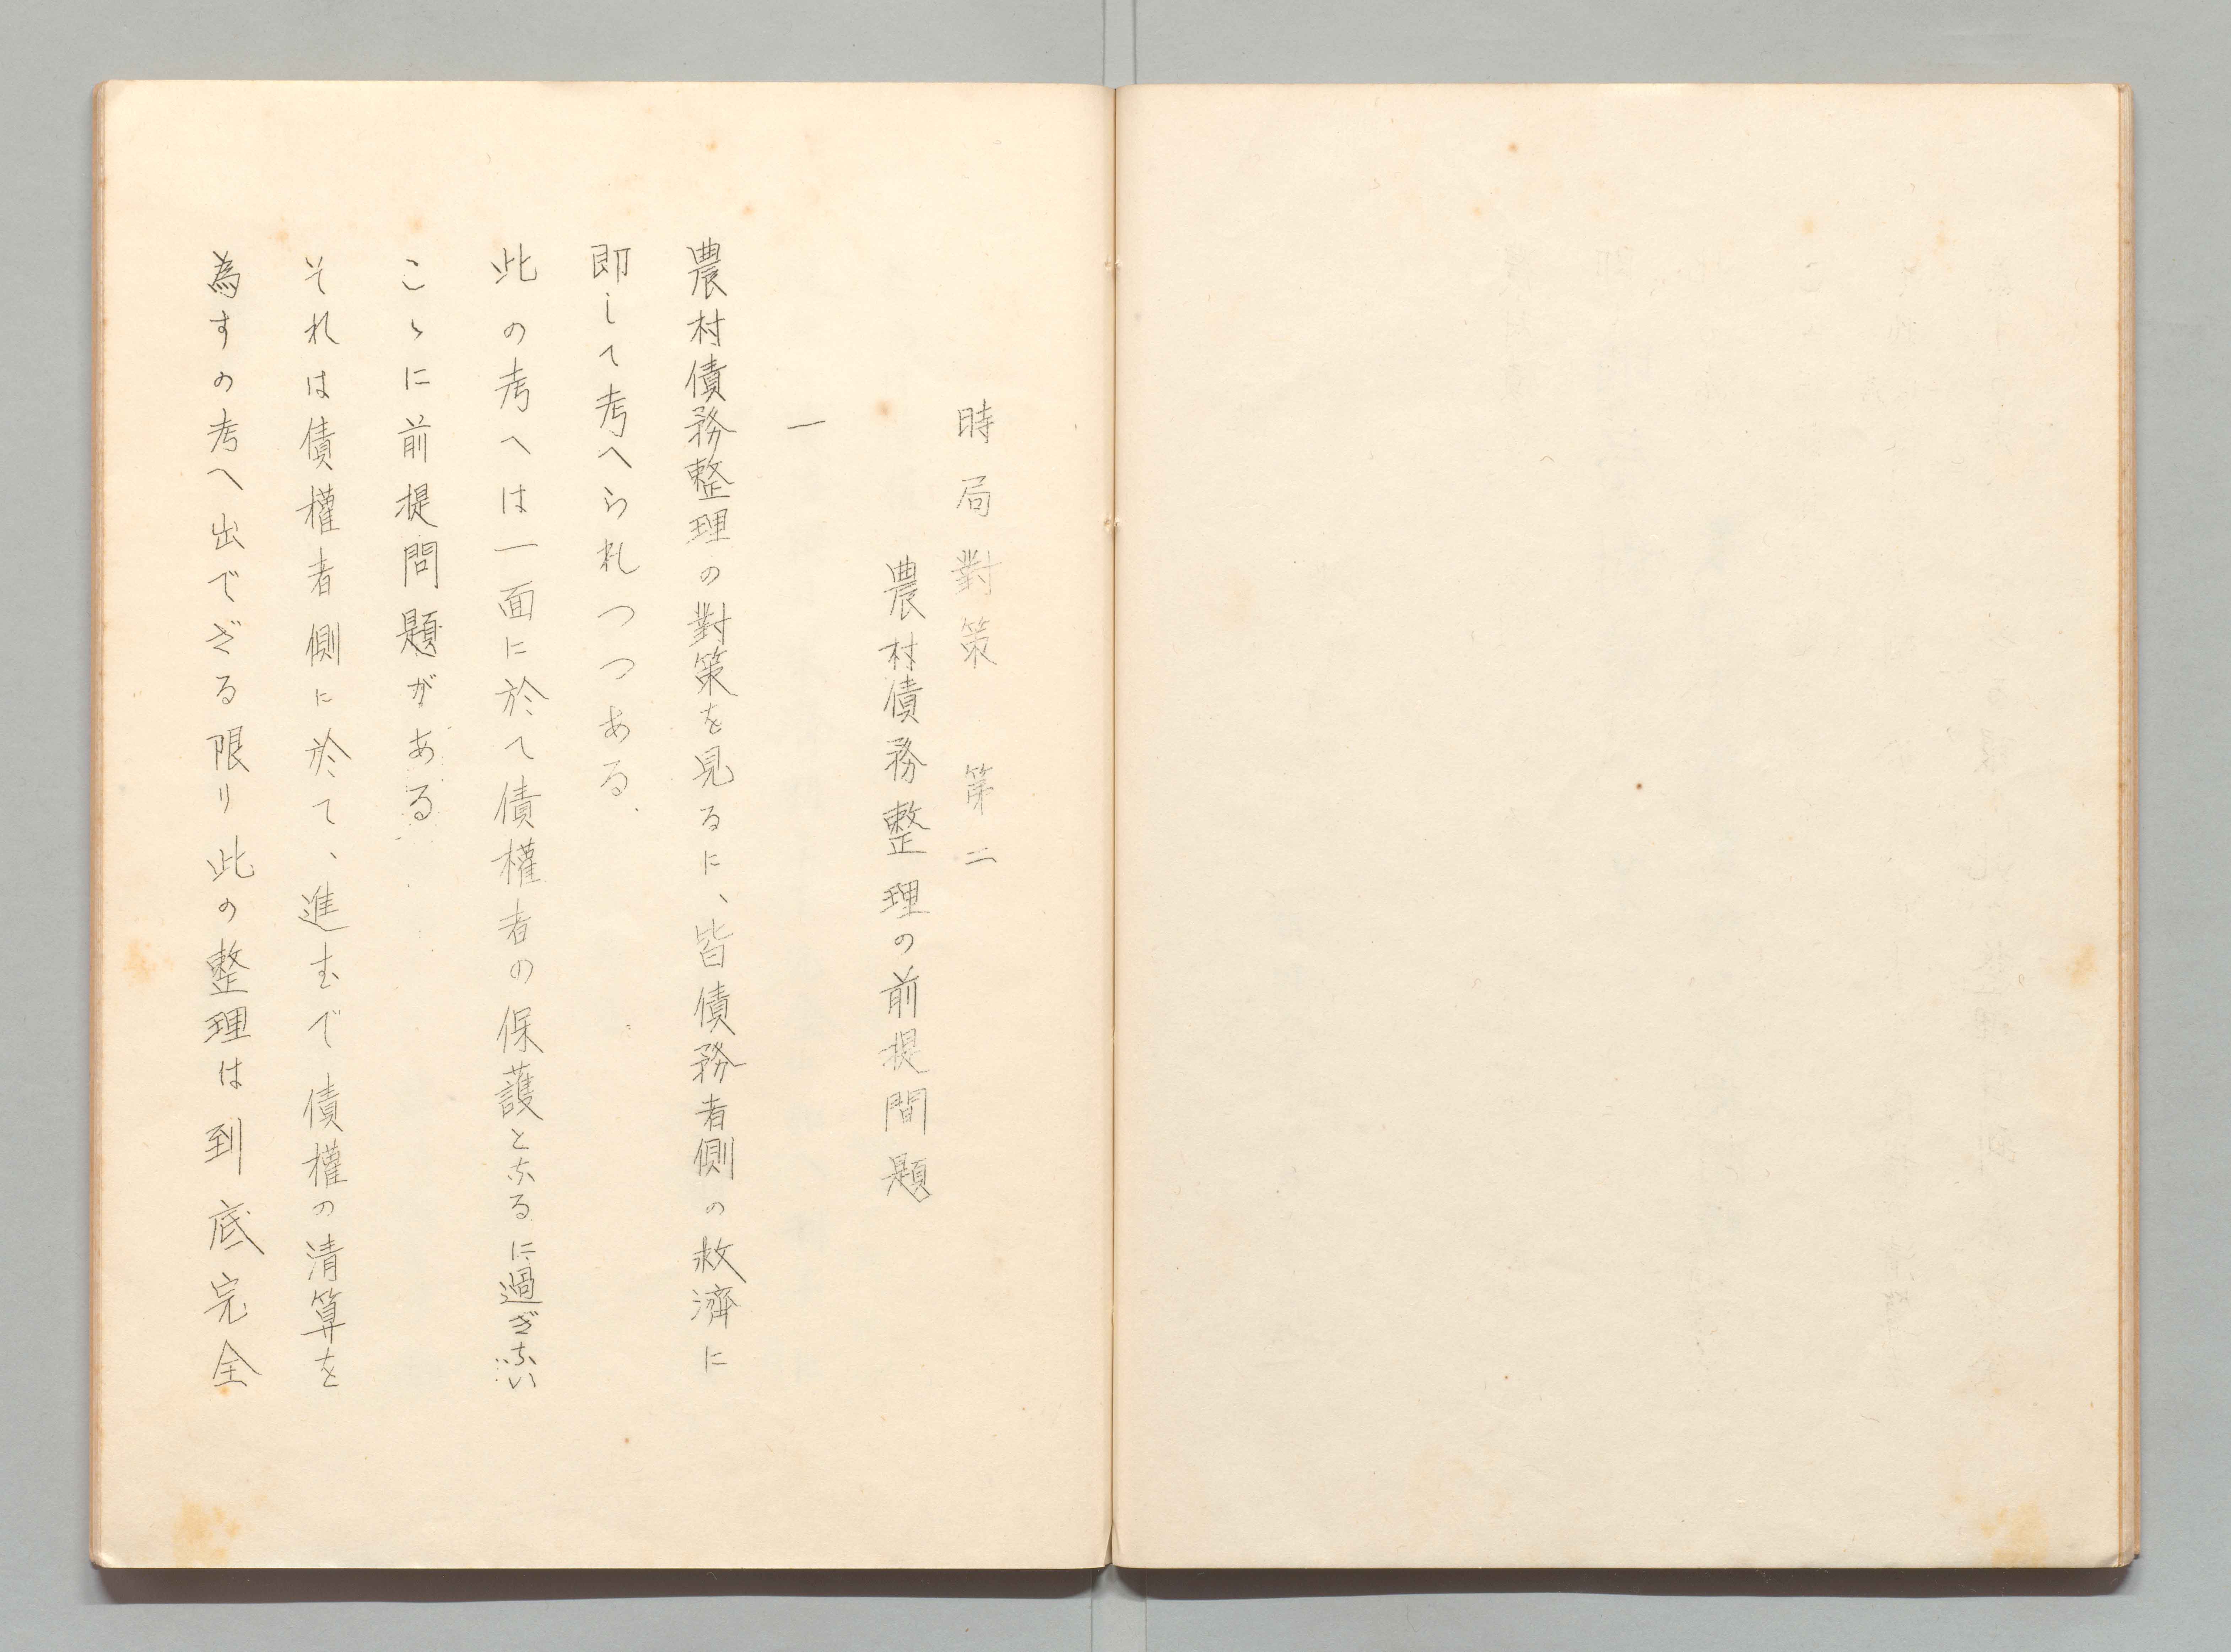 時局對策　第二
農村債務整理の前提問題
一
農村債務整理の對策を見るに、皆債務者側の救濟に
即して考へられつつある.
此の考へは一面に於て債權者の保護となるに過ぎない
こゝに前提問題がある
それは債權者側に於て、進むで債權の清算を
為すの考へ出でざる限り此の整理は到底完全